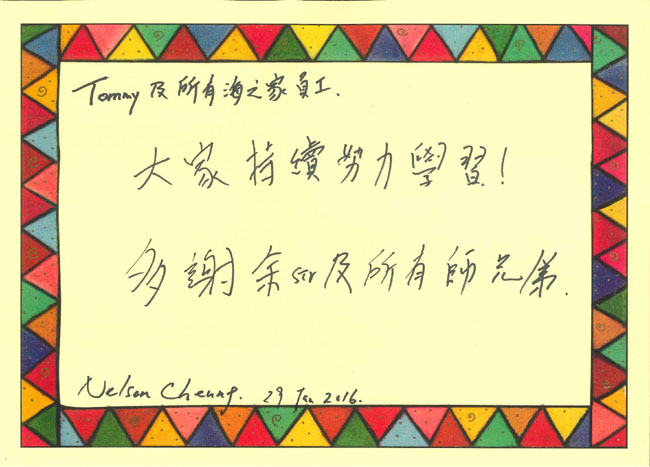 Tommy 及所有海之家員工.
大家持續努力學習!
多謝余sir及所有師兄弟.
Nelson Cheung. 29 Jan 2016.